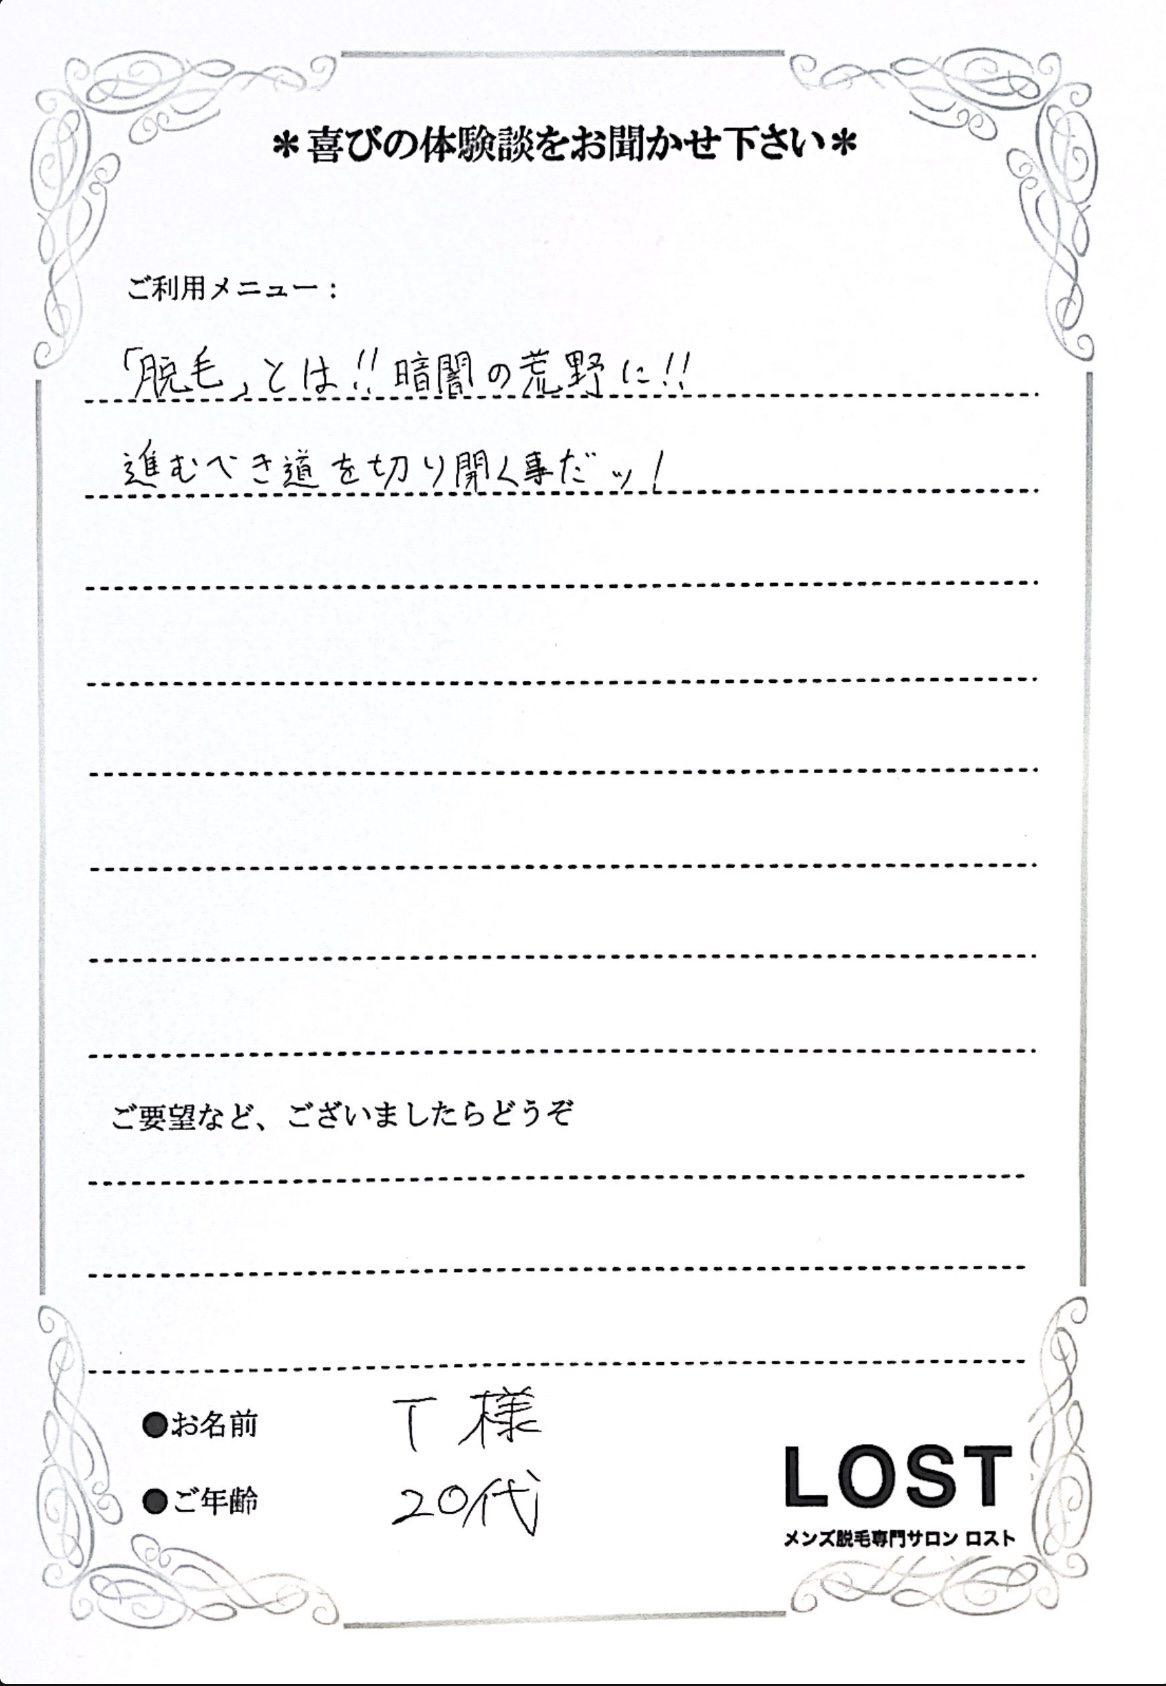 ＊喜びの体験談をお聞かせ下さい＊
ご利用メニュー：
「脱毛」とは!!暗闇の荒野に!!
進むべき道を切り開く事だッ!
ご要望など、ございましたらどうぞ
●お名前 T様
●ご年齢 20代
LOST
メンズ脱毛専門サロン ロスト